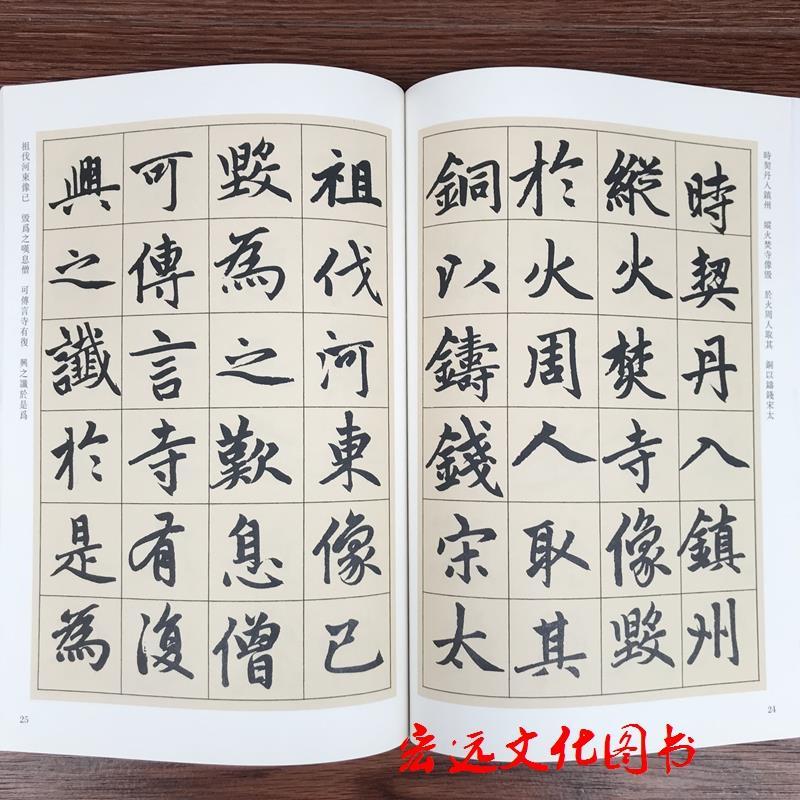 時契丹人鎮州 縱火焚寺像毀 於火周人取其 銅以鑄錢宋太
時契丹入鎮州
縱火焚寺像毀
於火周人取其
銅以鑄錢宋太
24
祖伐河東像已
毀為之歎息僧
可傳言寺有復
興之讖於是為
祖伐河東像已 毀爲之嘆息僧 可傳言寺有復 興之讖於是爲
25
宏远文化图书